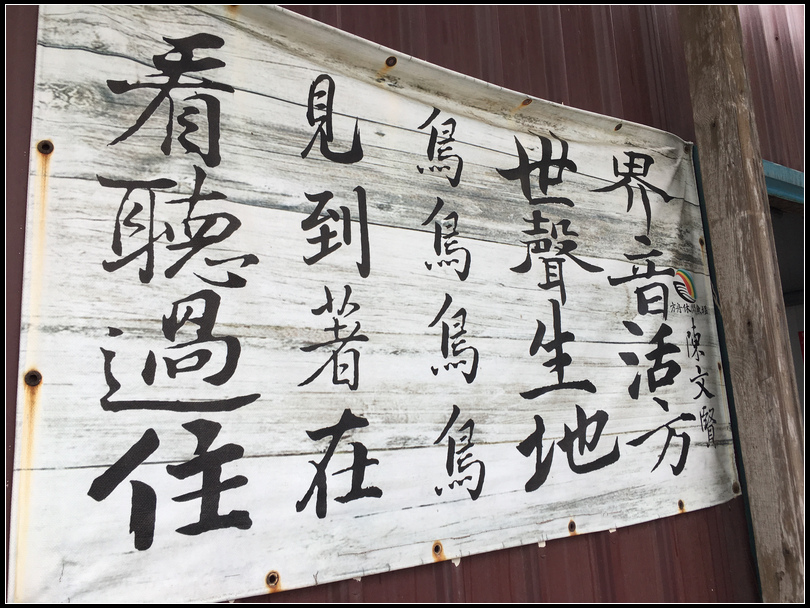 看見鳥世界
聽到鳥聲音
過著鳥生活
住在鳥地方
陳文賢